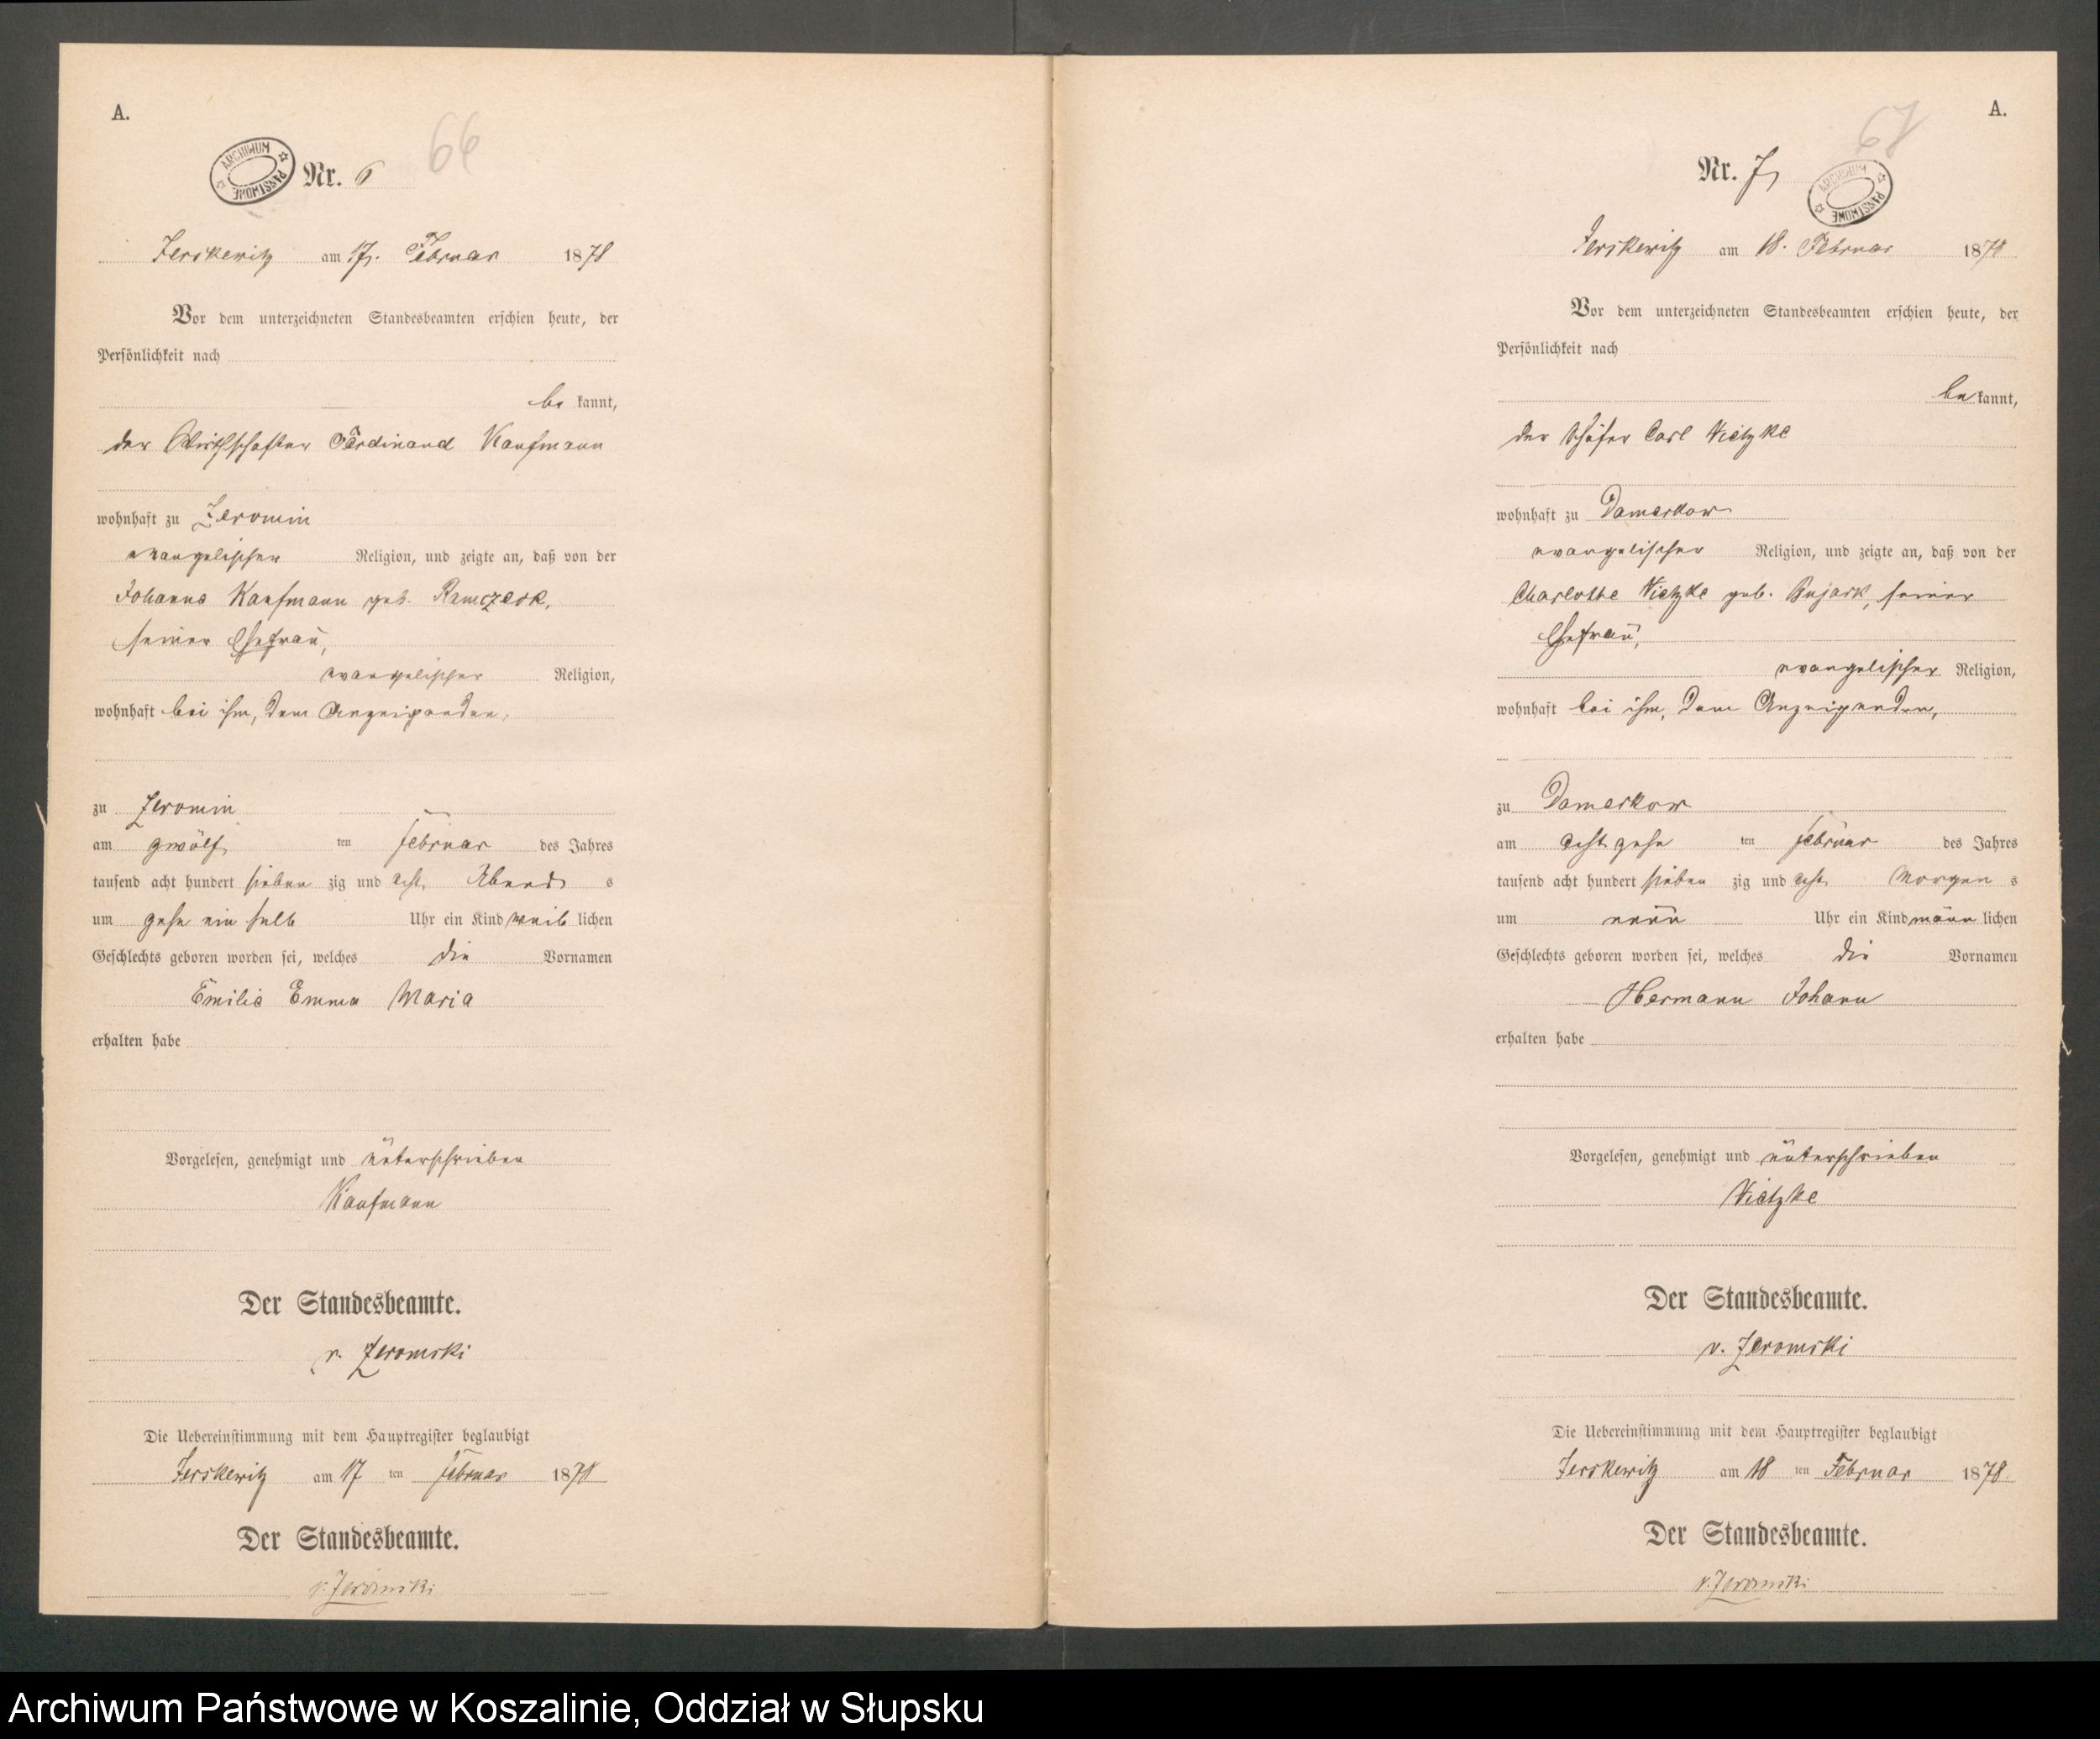 A.
66
ARCHIWUM PAŃSTWOWE
Nr. 6
Jerskewitz am 17. Februar 1878
Vor dem unterzeichneten Standesbeamten erschien heute, der
Persönlichkeit nach
be kannt,
der Wirthschafter Ferdinand Kaufmann
wohnhaft zu Zeromin
evangelischer Religion, und zeigte an, daß von der
Johanna Kaufmann geb. Ramczeck,
seiner Ehefrau,
evangelischer Religion,
wohnhaft bei ihm, dem Anzeigenden,
zu Zeromin
am zwölf ten Februar des Jahres
tausend acht hundert sieben zig und acht Abend s
um zehn ein halb Uhr ein Kind weib lichen
Geschlechts geboren worden sei, welches die Vornamen
Emilie Emma Maria
erhalten habe
Vorgelesen, genehmigt und unterschrieben
Kaufmann
Der Standesbeamte.
v. Zeromski
Die Uebereinstimmung mit dem Hauptregister beglaubigt
Jerskewitz am 17 ten Februar 1878
Der Standesbeamte.
v. Zeromski
A.
67
Nr. 7
ARCHIWUM PAŃSTWOWE
Jerskewitz am 18. Februar 1878
Vor dem unterzeichneten Standesbeamten erschien heute, der
Persönlichkeit nach
be kannt,
der Schäfer Carl Vietzke
wohnhaft zu Damerkow
evangelischer Religion, und zeigte an, daß von der
Charlotte Vietzke geb. Bujack, seiner
Ehefrau,
evangelischer Religion,
wohnhaft bei ihm, dem Anzeigenden,
zu Damerkow
am acht zehn ten Februar des Jahres
tausend acht hundert sieben zig und acht Morgen s
um neun Uhr ein Kind männ lichen
Geschlechts geboren worden sei, welches die Vornamen
Hermann Johann
erhalten habe
Vorgelesen, genehmigt und unterschrieben
Vietzke
Der Standesbeamte.
v. Zeromski
Die Uebereinstimmung mit dem Hauptregister beglaubigt
Jerskewitz am 18 ten Februar 1878.
Der Standesbeamte.
v. Zeromski
Archiwum Państwowe w Koszalinie, Oddział w Słupsku